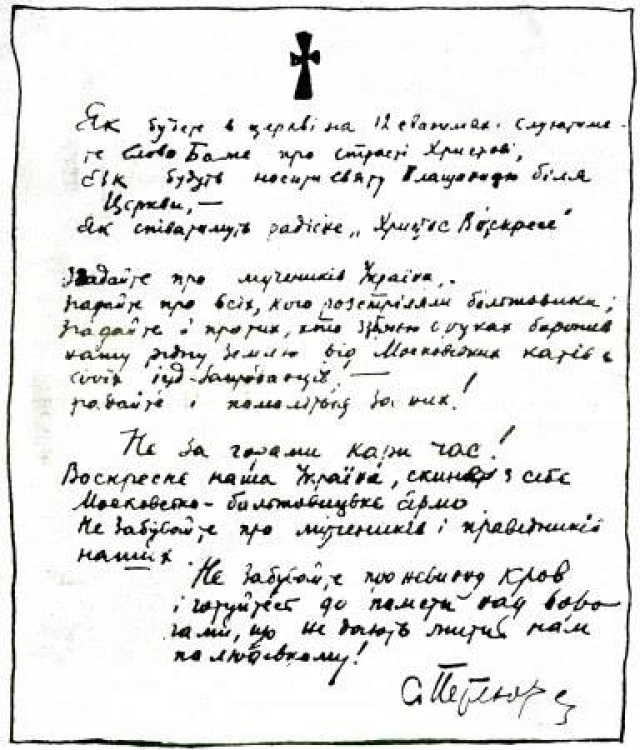 Як будете в церкві на 12 евангилиях слухатиме-
те Слово Боже про страсті Христові,
Як будуть носити святу Плащаницю біля
Церкви, —
Як співатимуть радісне „Христос Воскресе"
Згадайте про мучеників України,
згадайте про всіх, кого розстріляли большовики;
згадайте і про тих, хто з зброєю в руках боронив
нашу рідну землю від Московських катів і
своїх іуд-запроданців, —
згадайте і помолітся за них!
Не за горами кари час!
Воскресне наша Україна, скине з себе
Московсько-большовицьке ярмо
Не забувайте про мучеників і праведників
наших.
Не забувайте про невинну кров
і готуйтесь до помсти над воро-
гами, що не дають жити нам
по людському!
С. Петлюра